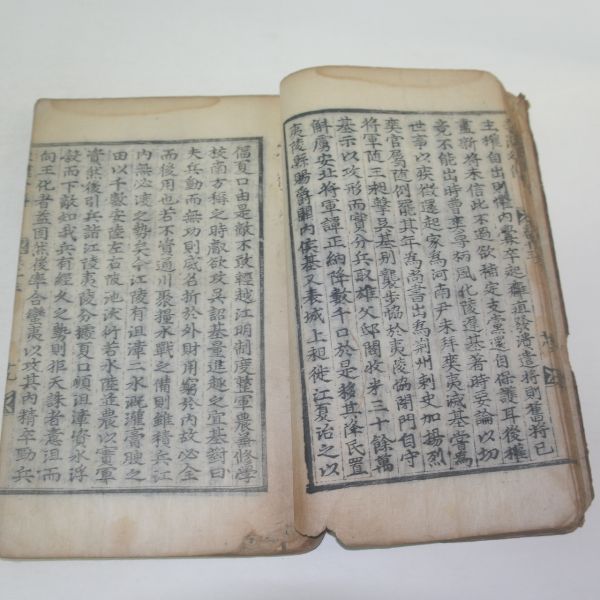 主權自出則懼內釁卒起癰疽發潰遣將則舊將已
盡新將未信此不過欲補定支黨還自保護耳後權
竟不能出時曹爽專柄風化陵遲基著時要論以切
世事以疾徵還起家爲河南尹未拜爽夷滅基嘗爲
爽官屬隨例罷其年爲尚書出爲荊州刺史加揚烈
將軍隨王昶擊吳基別襲步協於夷陵協閉門自守
基示以攻形而實分兵取雄父邸閣收米三十餘萬
斛虜安北將軍譚正納降數千口於是移其降民置
夷陵縣賜爵關內侯基又表城上昶徙江夏治之以
偪夏口由是敵不敢輕越江明制度整軍農兼修學
校南方稱之時朝欲攻吳詔基量進趣之宜基對曰
夫兵動而無功則威名折於外財用窮於內故必全
而後用也若不資通川聚糧水戰之備則雖積兵江
內無必渡之勢矣今江陵有沮漳二水溉灌膏腴之
田以千數安陸左右陂池沃衍若水陸並農以實軍
資然後引兵詣江陵夷陵分據夏口順沮漳資水浮
穀而下敵知我兵有經久之勢則拒天誅者意沮而
向王化者益固然後率合蠻夷以攻其內精卒勁兵